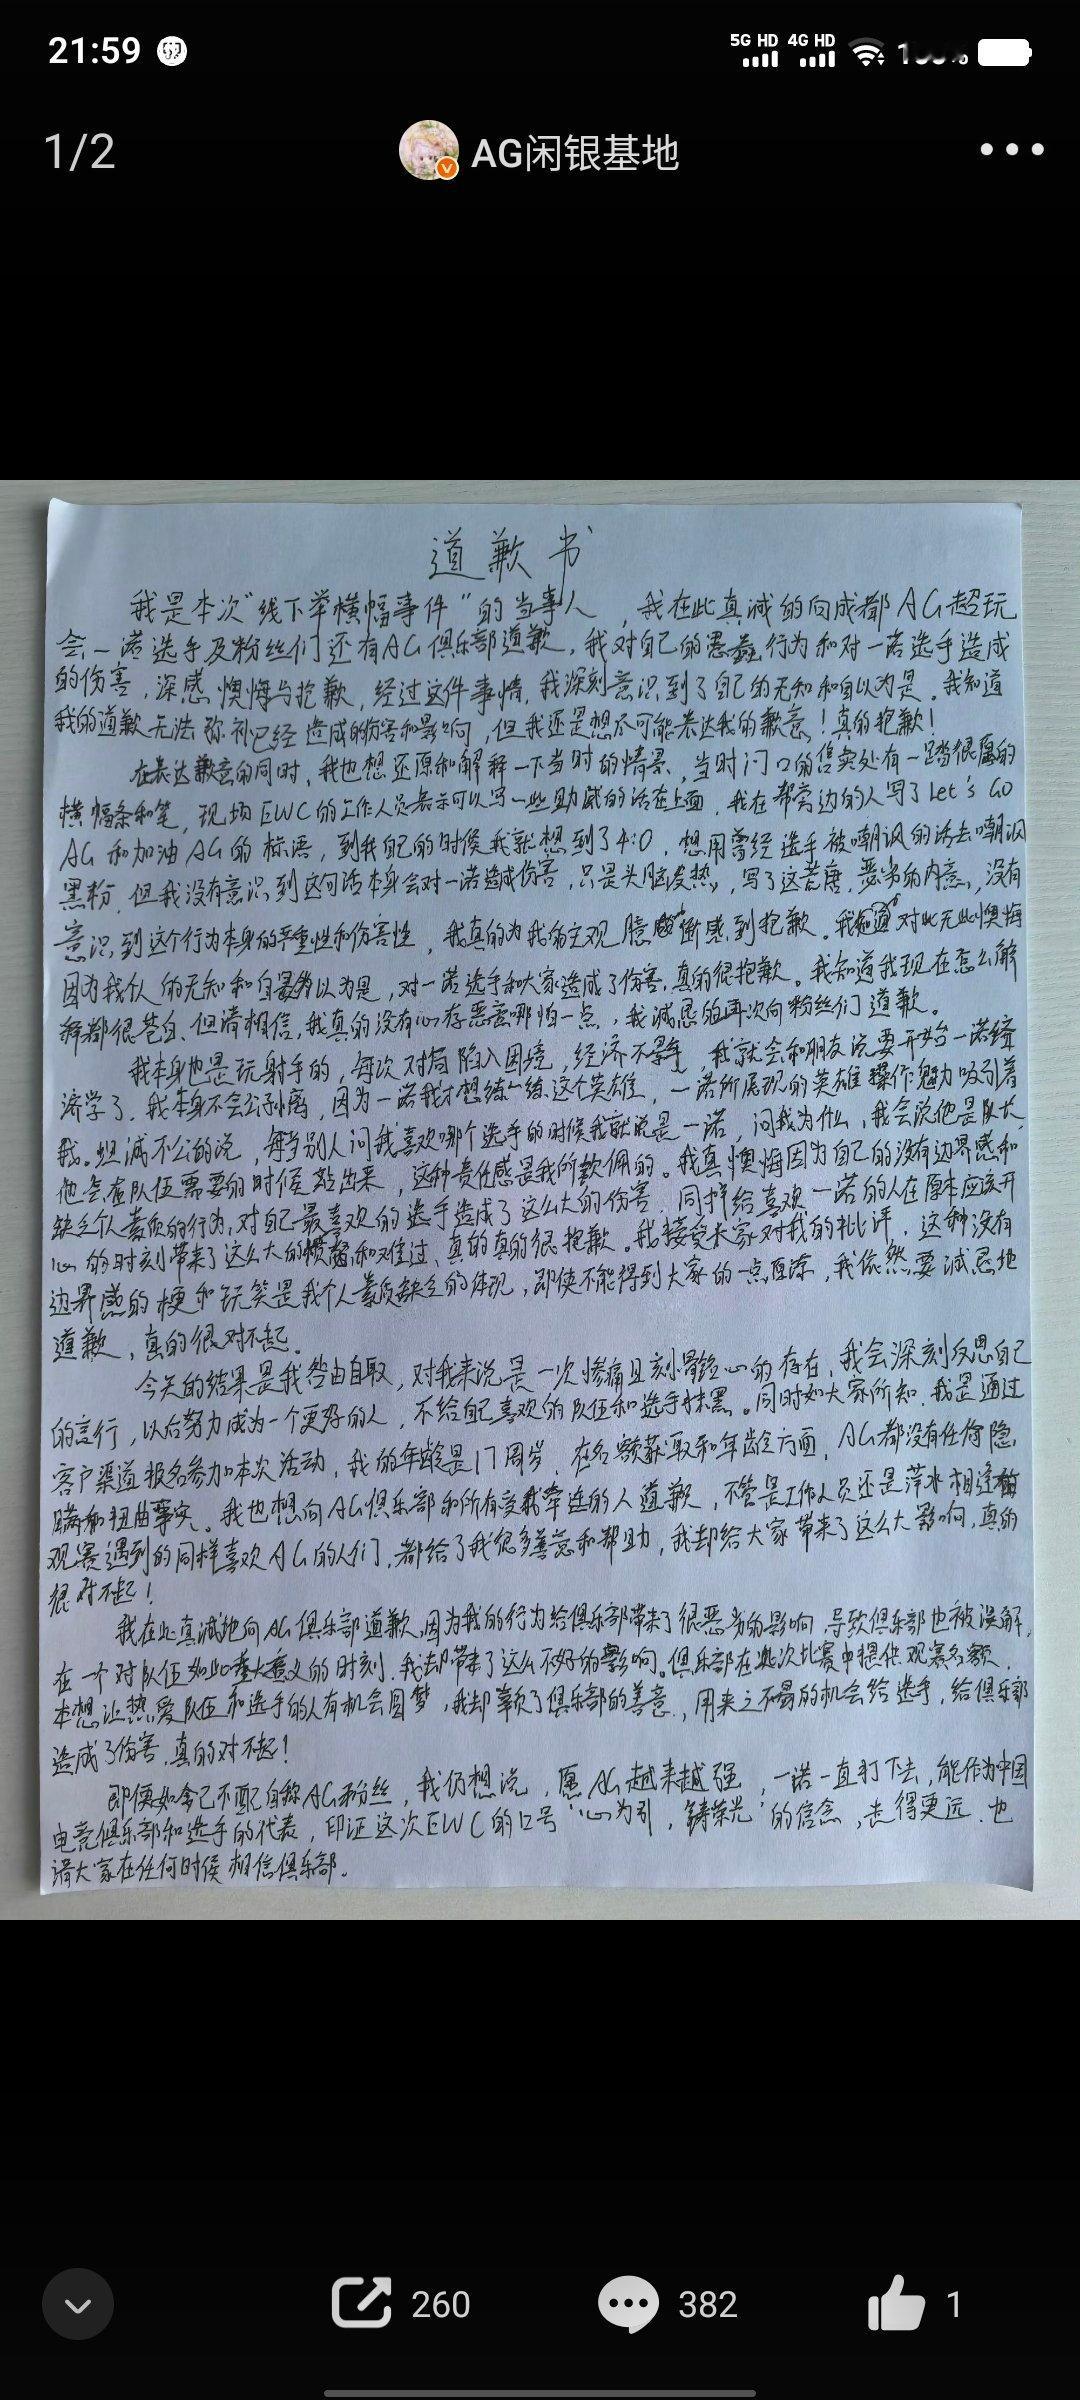 21:59
5G HD 4G HD
1/2
AG闲银基地
道歉书
我是本次“线下举横幅事件”的当事人，我在此真诚的向成都AG超玩
会一诺选手及粉丝们还有AG俱乐部道歉，我对自己的愚蠢行为和对一诺选手造成
的伤害，深感懊悔与抱歉，经过这件事情，我深刻意识到了自己的无知和自以为是。我知道
我的道歉无法弥补已经造成的伤害和影响，但我还是想尽可能表达我的歉意！真的抱歉！
在表达歉意的同时，我也想还原和解释一下当时的情景，当时门口的售卖处有一踏很厚的
横幅条和笔，现场EWC的工作人员表示可以写一些助威的话在上面，我在帮旁边的人写了Let's GO
AG和加油AG的标语，到我自己的时候我就想到了4:0，想用曾经选手被嘲讽的话去嘲讽
黑粉，但我没有意识到这句话本身会对一诺造成伤害，只是头脑发热，写了这荒唐，恶劣的内容，没有
意识到这个行为本身的严重性和伤害性，我真的为我的主观臆断感到抱歉。我知道对此无比懊悔
因为我个人的无知和自以为是，对一诺选手和大家造成了伤害，真的很抱歉。我知道我现在怎么解
释都很苍白，但请相信，我真的没有心存恶意哪怕一点，我诚恳的再次向粉丝们道歉。
我本身也是玩射手的，每次对局陷入困境，经济不景，我就会和朋友说要开始一诺经
济学了，我本身不会公孙离，因为一诺我才想练一练这个英雄，一诺所展现的英雄操作魅力吸引着
我。坦诚不公的说，每当别人问我喜欢哪个选手的时候我就说是一诺，问我为什么，我会说他是队长
他会在队伍需要的时候站出来，这种责任感是我所钦佩的。我真懊悔因为自己的没有边界感和
缺乏个人素质的行为，对自己最喜欢的选手造成了这么大的伤害，同样给喜欢一诺的人在原本应该开
心的时刻带来了这么大的愤怒和难过，真的真的很抱歉。我接受大家对我的批评，这种没有
边界感的梗和玩笑是我个人素质缺乏的体现，即使不能得到大家的一点原谅，我依然要诚恳地
道歉，真的很对不起。
今天的结果是我咎由自取，对我来说是一次惨痛且刻骨铭心的存在，我会深刻反思自己
的言行，以后努力成为一个更好的人，不给自己喜欢的队伍和选手抹黑。同时如大家所知，我是通过
客户渠道报名参加本次活动，我的年龄是17周岁，在名额获取和年龄方面，AG都没有任何隐
瞒和扭曲事实。我也想向AG俱乐部和所有受我牵连的人道歉，不管是工作人员还是萍水相逢
观赛遇到的同样喜欢AG的人们，都给了我很多善意和帮助，我却给大家带来了这么大影响，真的
很对不起！
我在此真诚地向AG俱乐部道歉，因为我的行为给俱乐部带来了很恶劣的影响，导致俱乐部也被误解，
在一个对队伍如此重大意义的时刻，我却带来了这么不好的影响。俱乐部在此次比赛中提供观赛名额，
本想让热爱队伍和选手的人有机会圆梦，我却辜负了俱乐部的善意，用来之不易的机会给选手，给俱乐部
造成了伤害，真的对不起！
即便如今已不配自称AG粉丝，我仍想说，愿AG越来越强，一诺一直打下去，能作为中国
电竞俱乐部和选手的代表，印证这次EWC的口号“心为引，铸荣光”的信念，走得更远，也
请大家在任何时候相信俱乐部。
260
382
1